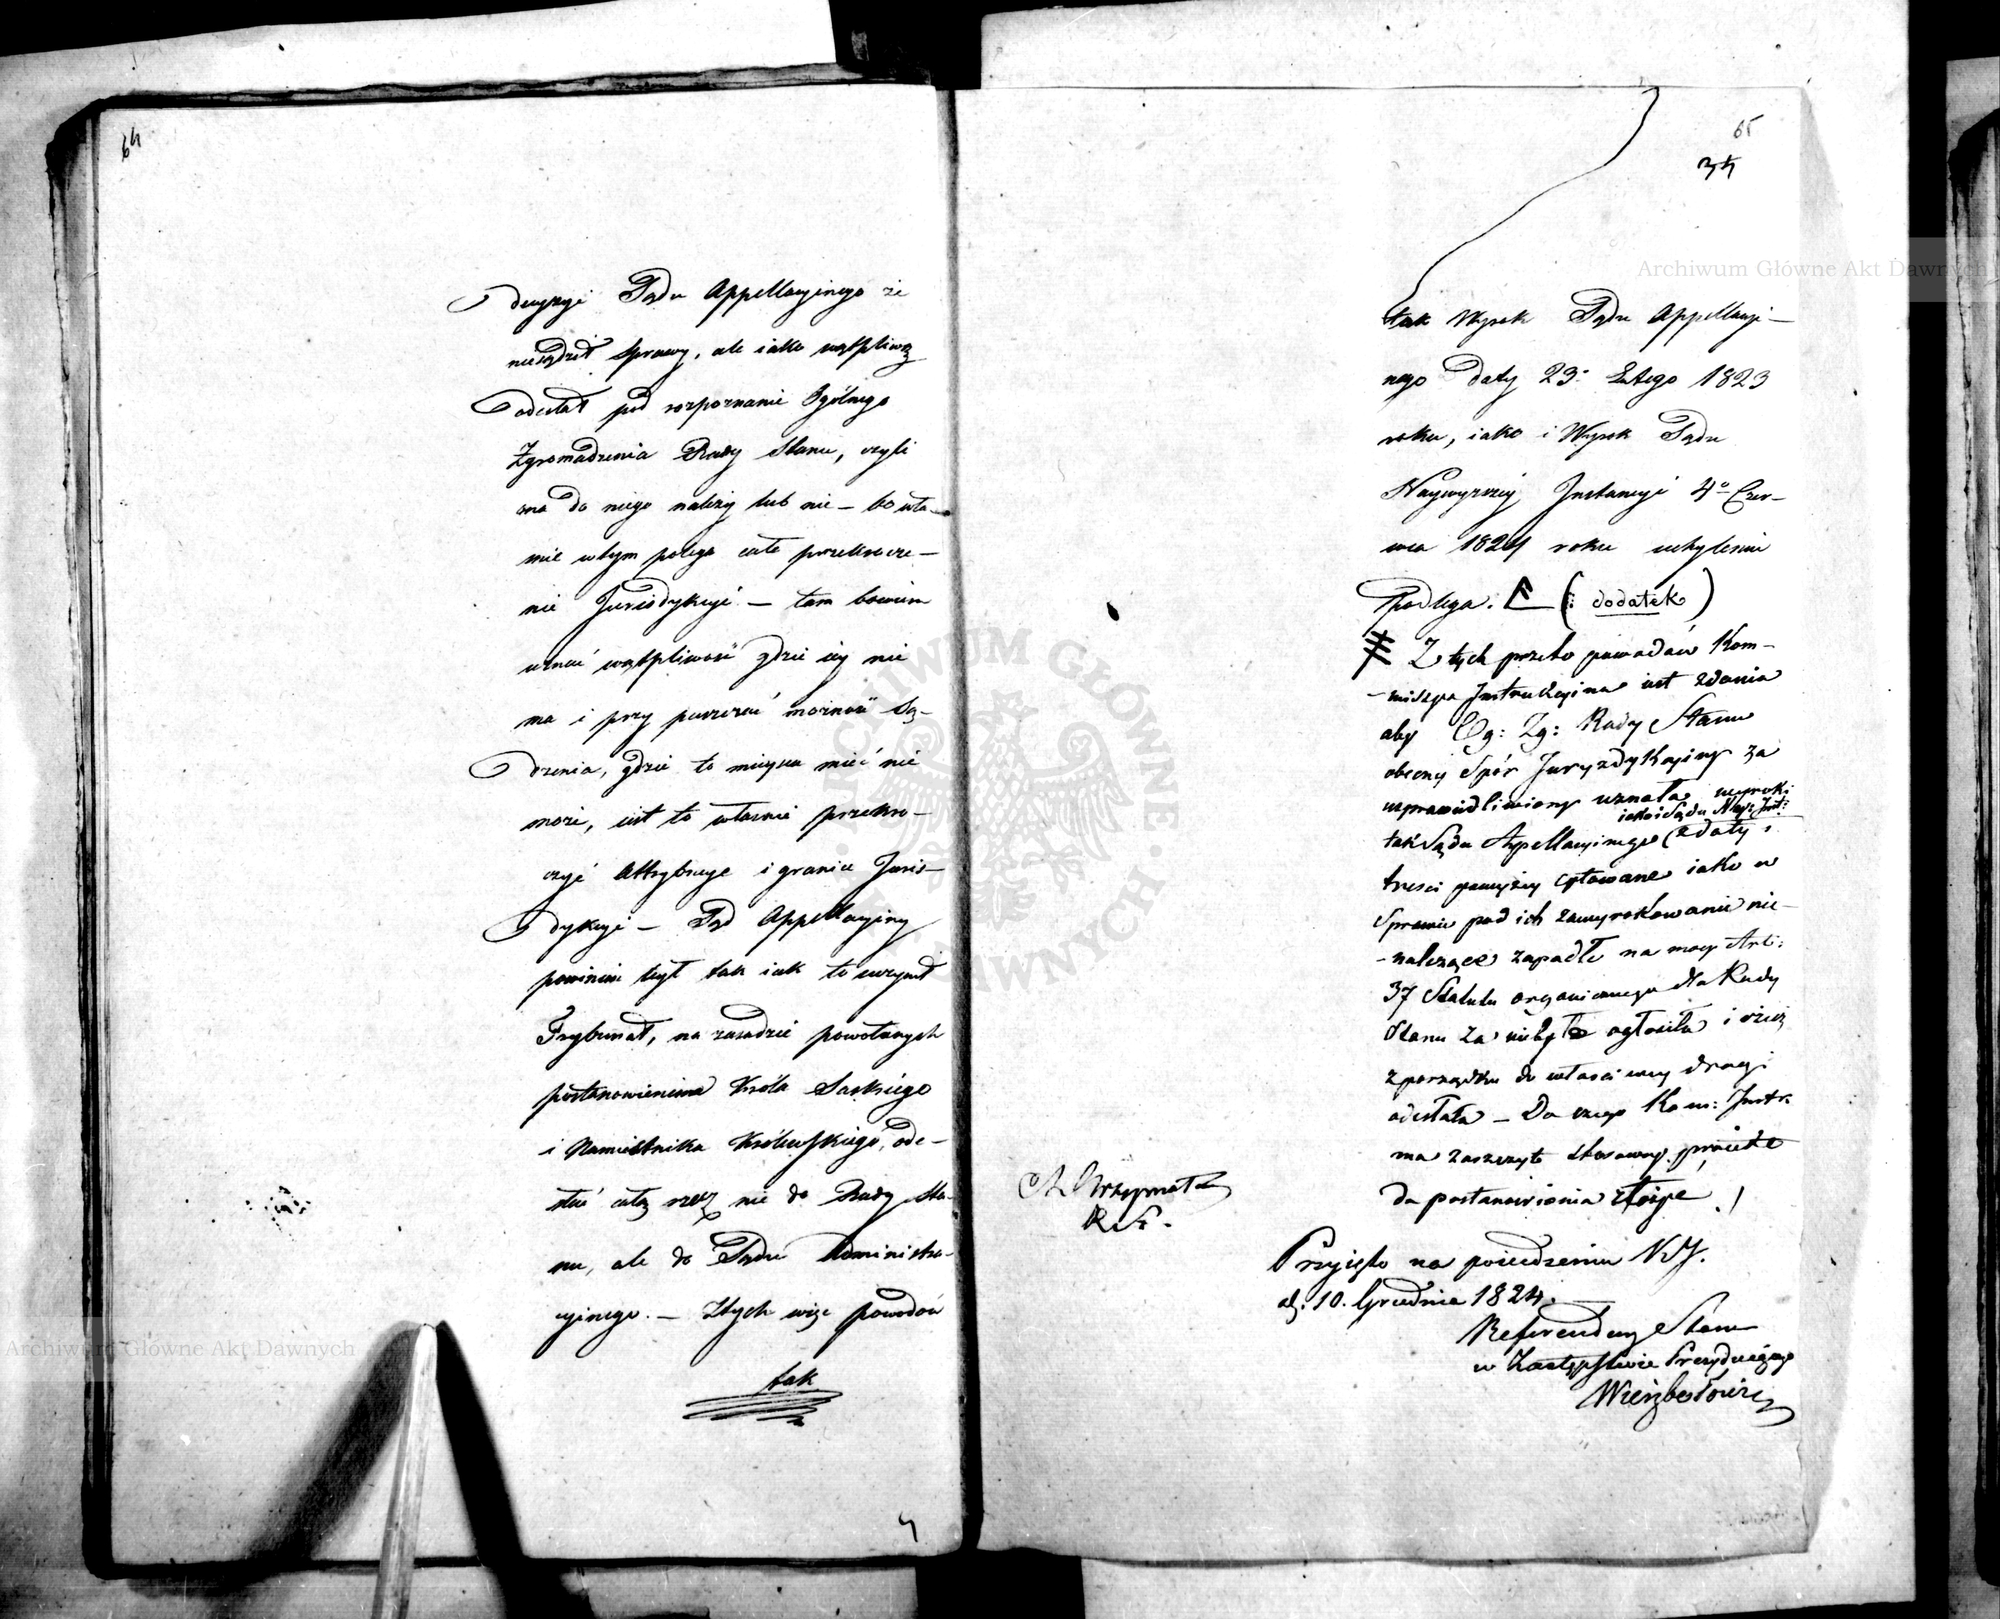 64
decyzyi Sądu Appellacyinego że
niesądził sprawy, ale iako wątpliwą
odesłał pod rozpoznanie Ogólnego
Zgromadzenia Rady Stanu, czyli
ona do niego należy lub nie – bo wła-
nie w tym polega całe przekrocze-
nie Jurisdykcyi – tam bowiem
uznać wątpliwość gdzie iey nie
ma i przypuszczać możność Są-
dzenia, gdzie to mieysca mieć nie
może, iest to własnie przekro-
czyć Attrybucye i granice Juris-
dykcyi – Sąd Appellacyiny
powinien był tak iak to uczynił
Trybunał, na zasadzie powołanych
postanowieniem Króla Saskiego
i Namiestnika Królewskiego, ode-
słać całą rzecz nie do Rady Sta-
nu, ale do Sądu Administra-
cyinego. – Z tych więc powodów
tak
65
34
tak Wyrok Sądu Appellacyi-
nego daty 23 Lutego 1823
roku, iako i Wyrok Sądu
Naywyższey Instancyi 4º Czer-
wca 1824 roku uchyleniu
podlega. (: dodatek)
Z tych przeto powodów Kom-
-missya Instrukcyina iest zdania
aby Og: Zg: Rady Stanu
obecny Spór Juryzdykcyiny za
usprawiedliwiony uznała wyroki
iako i Sądu Nayż: Inst:
tak Sądu Appellacyinego z daty i
treści powyżey cytowane iako w
Sprawie pod ich zawyrokowanie nie-
-należące zapadłe na mocy Art:
37 Statutu organicznego dla Rady
Stanu za niebyłe ogłosiła i rzecz
z porządku do właściwey drogi
odesłała – Do czego Kom: Instr.
ma zaszczyt stosowny proiekt
do postanowienia złożyć.
R. S.
Przyięto na posiedzeniu K J.
d. 10. Grudnia 1824.
Referendarz Stanu
w Zastępstwie Prezyduiącego
Wierzbołowicz